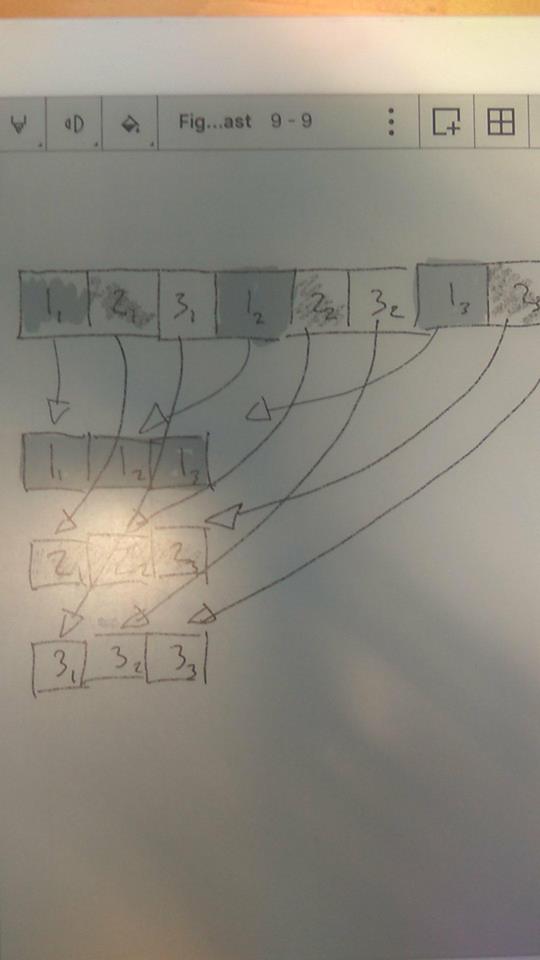 Fig...ast 9 - 9
1₁ 2₁ 3₁ 1₂ 2₂ 3₂ 1₃ 2₃
1₁ 1₂ 1₃
2₁ 2₂ 2₃
3₁ 3₂ 3₃